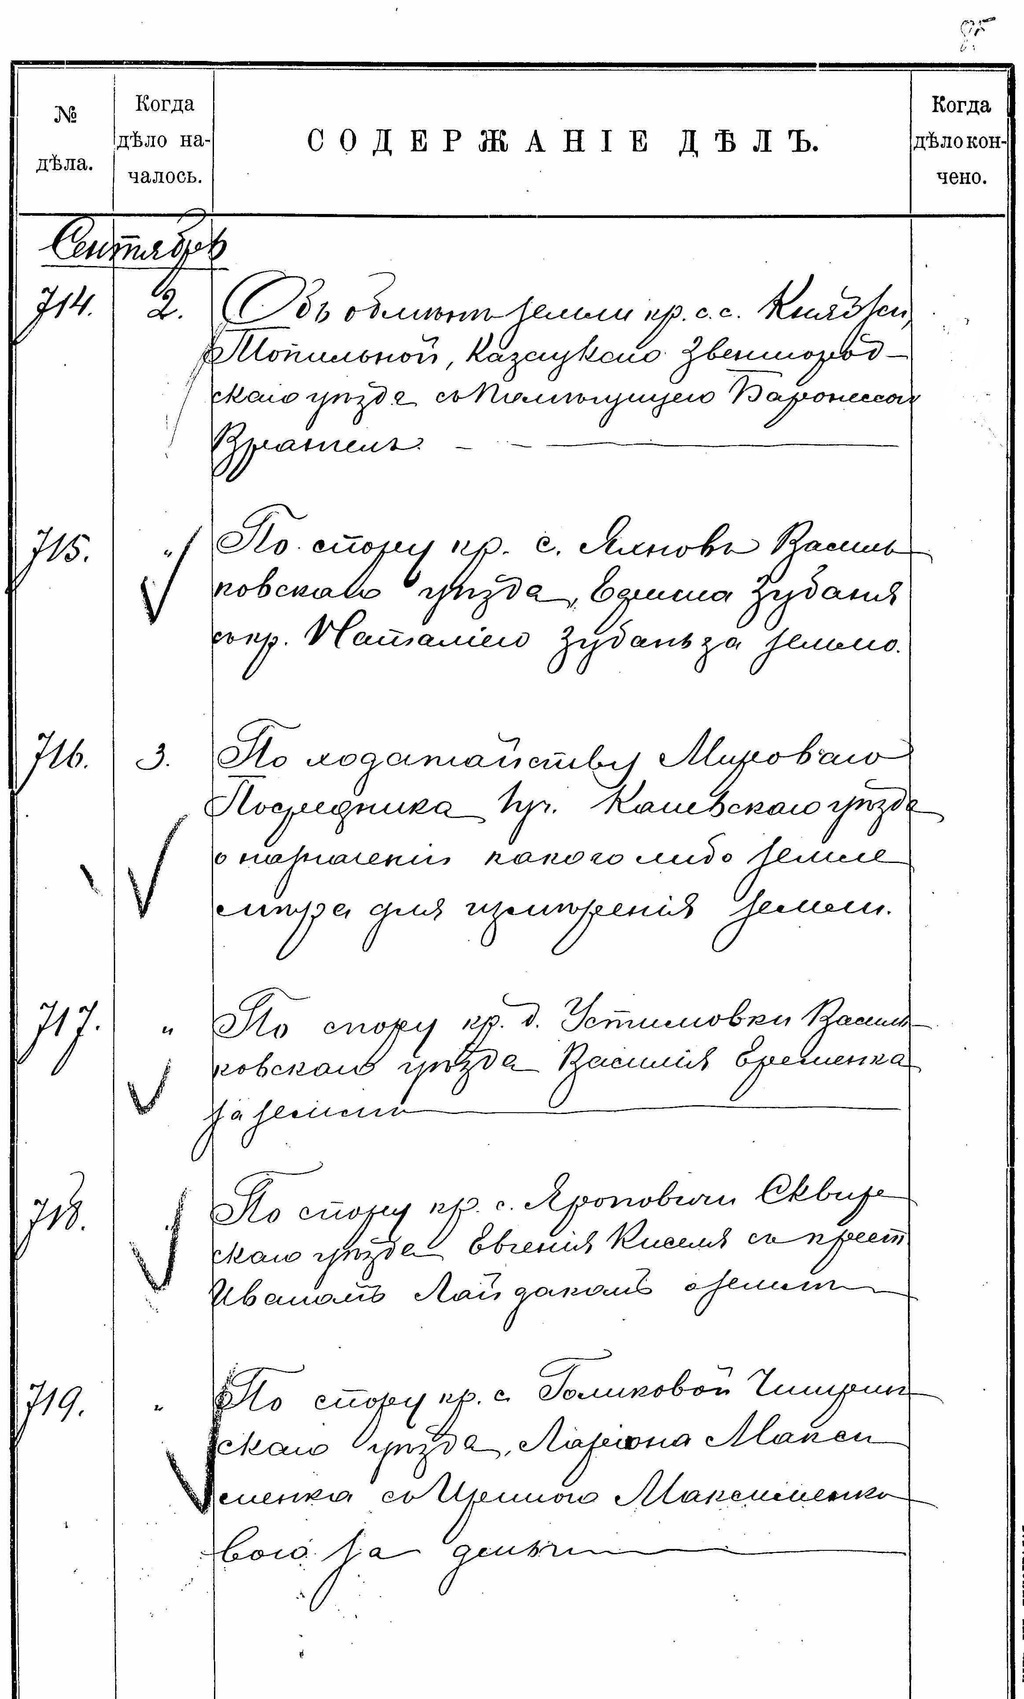 95
№ дѣла.
Когда дѣло на-
чалось.
СОДЕРЖАНІЕ ДѢЛЪ.
Когда дѣло кон-
чено.
Сентябрь
714. 2. Объ обмѣнѣ земли кр. с. с. Княжей,
Топильной, Казацкаго Звенигород-
скаго уѣзда съ Помѣщицею Баронессою
Врангель.
715. " По спору кр. с. Яхновъ Василь
ковскаго уѣзда, Зубаня
съ кр. Наталіею Зубань за землю.
716. 3. По ходатайству Мироваго
Посредника 1 уч. Каневскаго уѣзда
о назначеніи какого либо земле
мѣра для измѣренія земли.
717. " По спору кр. д. Устимовки Василь-
ковскаго уѣзда Василія Еременка
за землю
718. " По спору кр. с. Яроповичи Сквир
скаго уѣзда Евгенія Киселя съ крест
Иваномъ Лайдакомъ о землѣ
719. " По спору кр. с. Голиковой Чигирин
скаго уѣзда, Ларіона Макси
менка съ Ириною Максименко
вою за деньги